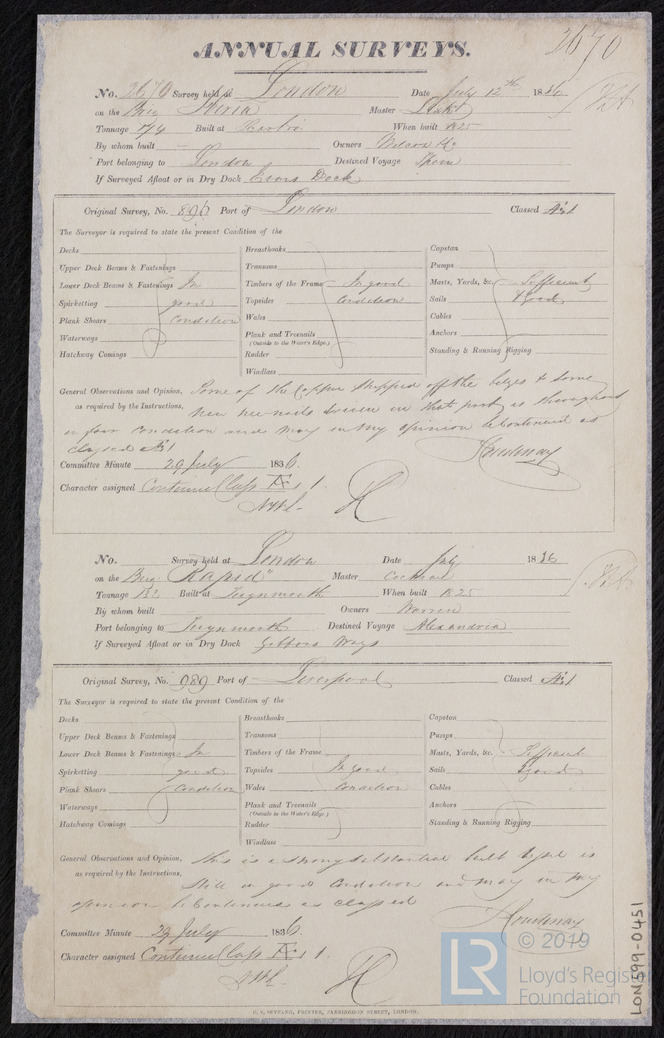 2670
ANNUAL SURVEYS.
No. 2670 Survey held at London Date July 12th 1836
on the Brig Master
Tonnage 174 Built at When built 1825
By whom built Owners Wilcox & Co
Port belonging to London Destined Voyage
If Surveyed Afloat or in Dry Dock Evans Dock
Original Survey, No. 896 Port of London Classed A1
The Surveyor is required to state the present Condition of the
Decks
Upper Deck Beams & Fastenings
Lower Deck Beams & Fastenings In
Spirketting good
Plank Shears Condition
Waterways
Hatchway Comings
Breasthooks
Transoms
Timbers of the Frame In good
Topsides Condition
Wales
Plank and Treenails
(Outside to the Water's Edge.)
Rudder
Windlass
Capstan
Pumps
Masts, Yards, &c. Sufficient
Sails & Good
Cables
Anchors
Standing & Running Rigging
General Observations and Opinion, Some of the Copper stripped off the bilges & some
as required by the Instructions, new treenails driven in that part, is throughout
in fair condition and may in my opinion be Continued as
classed A1
Courtenay
Committee Minute 29 July 1836.
Character assigned Continued Class A 1.
No. Survey held at London Date July 1836
on the Brig "Rapid" Master Cochran
Tonnage 132 Built at Teignmouth When built 1825
By whom built Owners Warren
Port belonging to Teignmouth Destined Voyage Alexandria
If Surveyed Afloat or in Dry Dock Gibbons Ways
Original Survey, No. 989 Port of Liverpool Classed A1
The Surveyor is required to state the present Condition of the
Decks
Upper Deck Beams & Fastenings
Lower Deck Beams & Fastenings In
Spirketting good
Plank Shears Condition
Waterways
Hatchway Comings
Breasthooks
Transoms
Timbers of the Frame
Topsides In good
Wales Condition
Plank and Treenails
(Outside to the Water's Edge.)
Rudder
Windlass
Capstan
Pumps
Masts, Yards, &c. Sufficient
Sails & good
Cables
Anchors
Standing & Running Rigging
General Observations and Opinion, This is a strong substantial built is
as required by the Instructions, still in good Condition and may in my
opinion be Continued as classed
Courtenay
Committee Minute 29 July 1836.
Character assigned Continued Class A 1.
G. S. SEYFANG, PRINTER, FARRINGDON STREET, LONDON.
LR
© 2019
Lloyd's Register
Foundation
LON599-0451